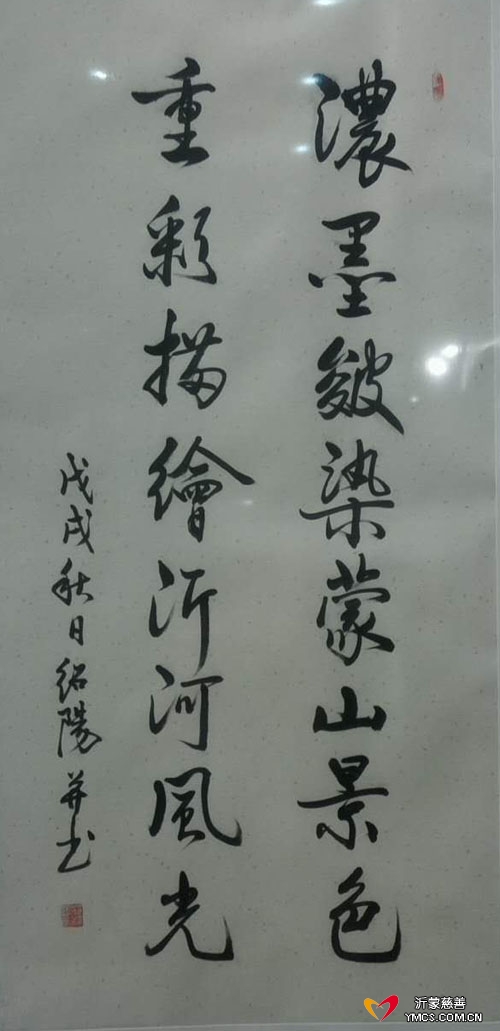 濃墨皴染蒙山景色
重彩描繪沂河風光
戊戌秋日紹陽并书
沂蒙慈善
YMCS.COM.CN